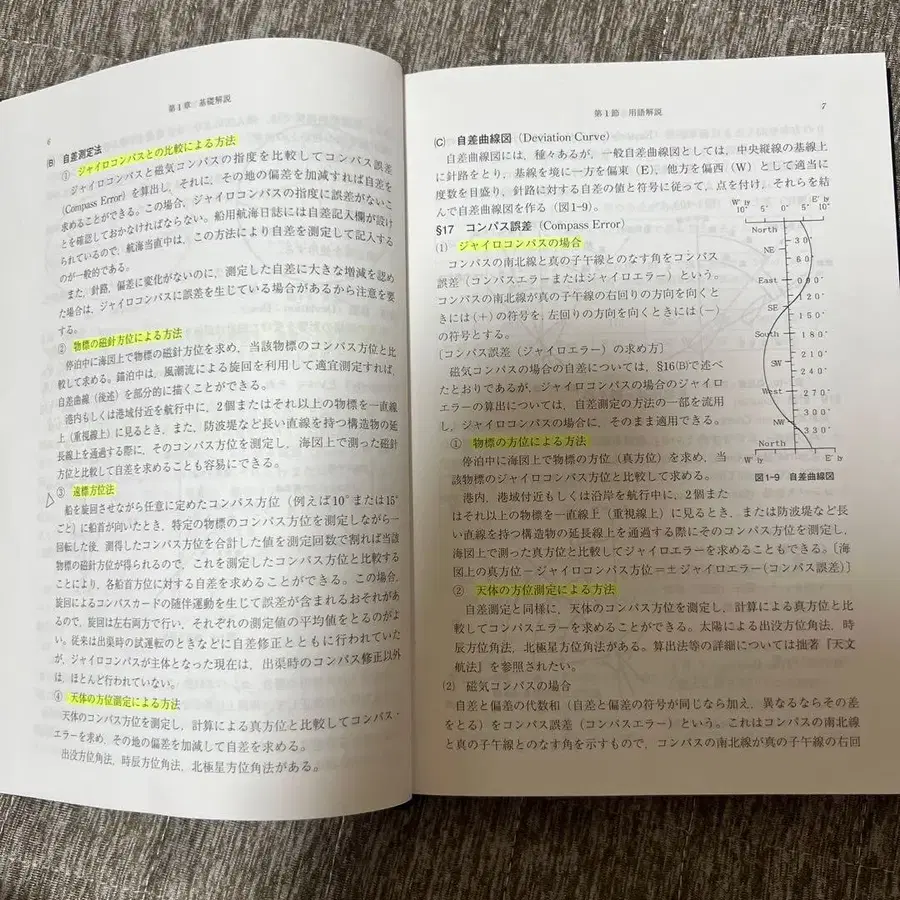 第1章 基礎解説
6
(B) 自差測定法
① ジャイロコンパスとの比較による方法
ジャイロコンパスと磁気コンパスの指度を比較してコンパス誤差
(Compass Error) を算出し、それに、その地の偏差を加減すれば自差を
求めることができる。この場合、ジャイロコンパスの指度に誤差がないこ
とを確認しておかなければならない。船用航海日誌には自差記入欄が設け
られているので、航海当直中は、この方法により自差を測定して記入する
のが一般的である。
また、針路、偏差に変化がないのに、測定した自差に大きな増減を認め
た場合は、ジャイロコンパスに誤差を生じている場合があるから注意を要
する。
② 物標の磁針方位による方法
停泊中に海図上で物標の磁針方位を求め、当該物標のコンパス方位と比
較して求める。錨泊中は、風潮流による旋回を利用して適宜測定すれば、
自差曲線(後述)を部分的に描くことができる。
港内もしくは港域付近を航行中に、2個またはそれ以上の物標を一直線
上(重視線上)に見るとき、また、防波堤など長い直線を持つ構造物の延
長線上を通過する際に、そのコンパス方位を測定し、海図上で測った磁針
方位と比較して自差を求めることも容易にできる。
③ 遠標方位法
船を旋回させながら任意に定めたコンパス方位(例えば10°または15°
ごと)に船首が向いたとき、特定の物標のコンパス方位を測定しながら一
回転した後、測得したコンパス方位を合計した値を測定回数で割れば当該
物標の磁針方位が得られるので、これを測定したコンパス方位と比較する
ことにより、各船首方位に対する自差を求めることができる。この場合、
旋回によるコンパスカードの随伴運動を生じて誤差が含まれるおそれがあ
るので、旋回は左右両方で行い、それぞれの測定値の平均値をとるのがよ
い。従来は出渠時の試運転のときなどに自差修正とともに行われていた
が、ジャイロコンパスが主体となった現在は、出渠時のコンパス修正以外
は、ほとんど行われていない。
④ 天体の方位測定による方法
天体のコンパス方位を測定し、計算による真方位と比較してコンパス・
エラーを求め、その地の偏差を加減して自差を求める。
出没方位角法、時辰方位角法、北極星方位角法がある。
第1節 用語解説
7
(C) 自差曲線図 (Deviation Curve)
自差曲線図には、種々あるが、一般自差曲線図としては、中央縦線の基線上
に針路をとり、基線を境に一方を偏東(E)、他方を偏西(W)として適当に
度数を目盛り、針路に対する自差の値と符号に従って、点を付け、それらを結
んで自差曲線図を作る(図1-9)。
§17 コンパス誤差 (Compass Error)
(1) ジャイロコンパスの場合
コンパスの南北線と真の子午線とのなす角をコンパス
誤差(コンパスエラーまたはジャイロエラー)という。
コンパスの南北線が真の子午線の右回りの方向を向くと
きには(+)の符号を、左回りの方向を向くときには(-)
の符号とする。
[コンパス誤差(ジャイロエラー)の求め方]
磁気コンパスの場合の自差については、§16(B)で述べ
たとおりであるが、ジャイロコンパスの場合のジャイロ
エラーの算出については、自差測定の方法の一部を流用
し、ジャイロコンパスの場合に、そのまま適用できる。
① 物標の方位による方法
停泊中に海図上で物標の方位(真方位)を求め、当
該物標のジャイロコンパス方位と比較して求める。
港内、港域付近もしくは沿岸を航行中に、2個また
はそれ以上の物標を一直線上(重視線上)に見るとき、または防波堤など長
い直線を持つ構造物の延長線上を通過する際にそのコンパス方位を測定し、
海図上で測った真方位と比較してジャイロエラーを求めることもできる。〔海
図上の真方位－ジャイロコンパス方位＝±ジャイロエラー(コンパス誤差)〕
② 天体の方位測定による方法
自差測定と同様に、天体のコンパス方位を測定し、計算による真方位と比
較してコンパスエラーを求めることができる。太陽による出没方位角法、時
辰方位角法、北極星方位角法がある。算出法等の詳細については拙著『天文
航法』を参照されたい。
(2) 磁気コンパスの場合
自差と偏差の代数和(自差と偏差の符号が同じなら加え、異なるならその差
をとる)をコンパス誤差(コンパスエラー)という。これはコンパスの南北線
と真の子午線とのなす角を示すもので、コンパスの南北線が真の子午線の右回
W'ly E'ly
10° 5° 0° 5° 10°
North
30°
NE
60°
East 090°
120°
SE
150°
South 180°
210°
SW
240°
West 270°
300°
NW
330°
North
W'ly E'ly
図1-9 自差曲線図